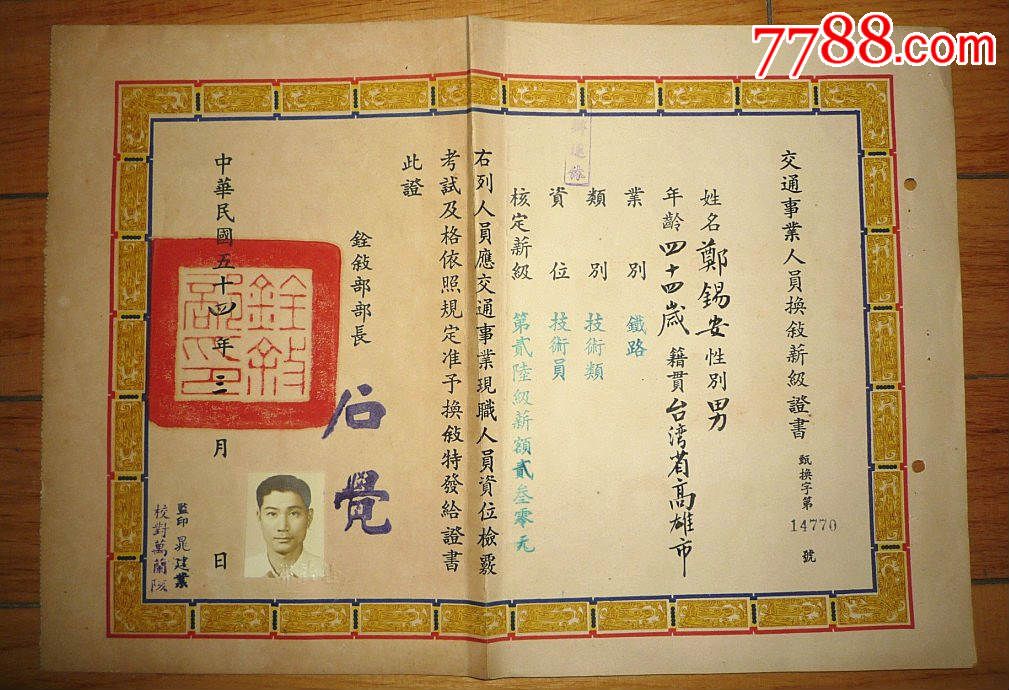 7788.com
交通事業人員換敘薪級證書 甄換字第14770號
姓名鄭錫安性別男
年齡四十四歲籍貫台湾省高雄市
業別鐵路
類別技術類
資位技術員
核定薪級第貳陸級薪額貳叁零元
右列人員應交通事業現職人員資位檢覈
考試及格依照規定准予換敍特發給證書
此證
銓敍部部長 石覺
銓敍部印
中華民國五十四年三月日
監印晁建業
校對萬蘭